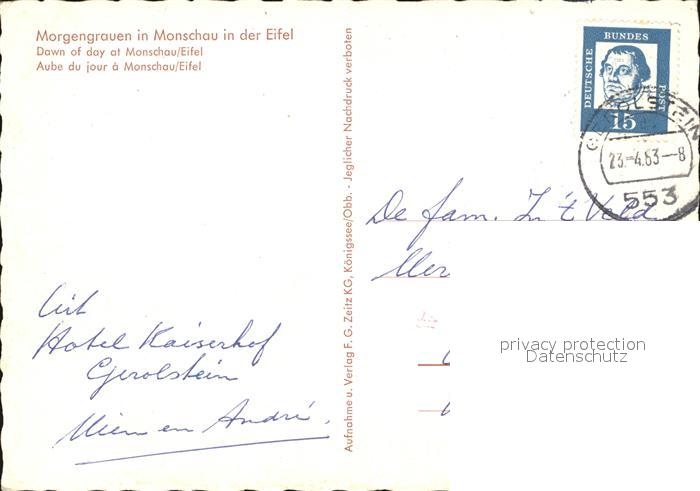 Morgengrauen in Monschau in der Eifel
Dawn of day at Monschau/Eifel
Aube du jour à Monschau/Eifel
Uit
Hotel Kaiserhof
Gerolstein
Mien en André.
Aufnahme u. Verlag F. G. Zeitz KG, Königssee/Obb. - Jeglicher Nachdruck verboten
DEUTSCHE BUNDES POST
15
GEROLSTEIN
23.-4.63--8
553
De fam. In 't Veld
privacy protection
Datenschutz